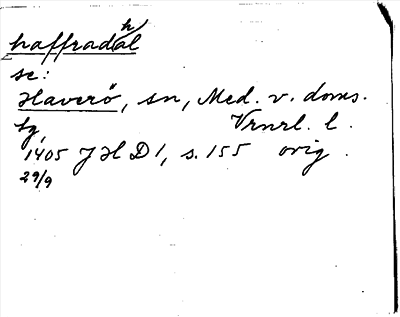 haffradahl
se:
Haverö, sn, Med. v. doms.
tg, Vrnrl. l.
1405 JHD 1, s. 155 orig.
29/9